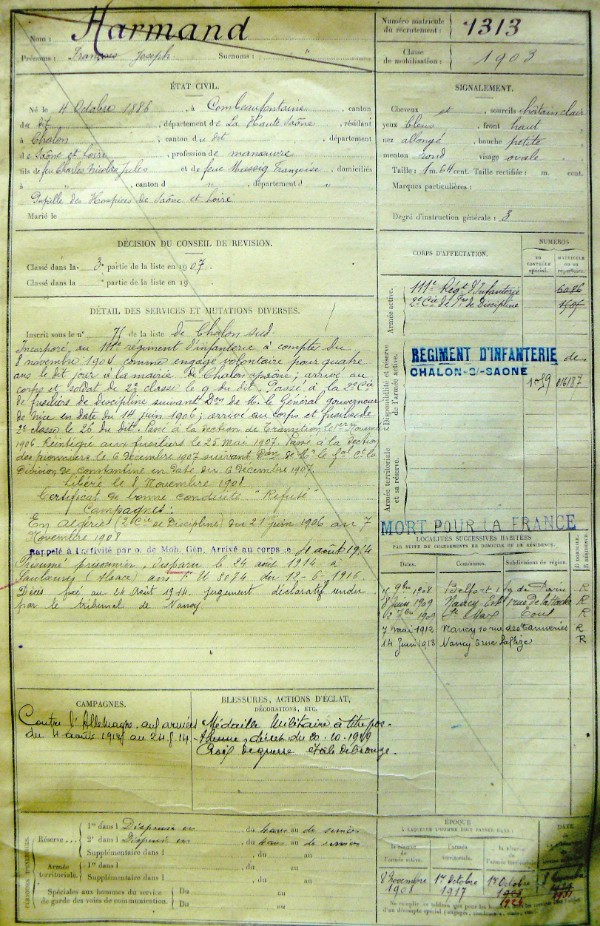 Nom : Harmand
Prénoms : François Joseph Surnoms : "
Numéro matricule du recrutement : 1313
Classe de mobilisation : 1903
ÉTAT CIVIL.
Né le 4 Octobre 1886, à Combeaufontaine, canton
du dit, département de La Haute Saône, résidant
à Chalon, canton du dit, département
de Saône et Loire, profession de manœuvre
fils de feu Charles Nicolas Jules et de feue Françoise, domiciliés
à ", canton d ", département d "
Pupille des Hospices de Saône et Loire
Marié le
SIGNALEMENT.
Cheveux et sourcils châtain clair
yeux bleus, front haut
nez allongé, bouche petite
menton rond visage ovale
Taille : 1 m. 64 cent. Taille rectifiée : m. cent.
Marques particulières :
Degré d'instruction générale : 3
DÉCISION DU CONSEIL DE REVISION.
Classé dans la 3e partie de la liste en 1907.
Classé dans la " partie de la liste en 19
CORPS D'AFFECTATION.
NUMÉROS
AU CONTRÔLE spécial.
MATRICULE OU AU répertoire.
Armée active.
111e Régt d'Infanterie
2e Cie de Discipline
Disponibilité et réserve de l'armée active.
RÉGIMENT D'INFANTERIE de
CHALON-S/-SAONE
Armée territoriale et sa réserve.
DÉTAIL DES SERVICES ET MUTATIONS DIVERSES.
Inscrit sous le n° 76 de la liste de Chalon sud
Incorporé au 111e régiment d'infanterie à compter du
8 novembre 1904 comme engagé volontaire pour quatre
ans le dit jour à la mairie de Chalon s/Saône, arrivé au
corps et soldat de 2e classe le 9 du dit. Passé à la 2e Cie
de fusiliers de discipline suivant Don de Mr. le Général gouverneur
de Nice en date du 14 juin 1906; arrivé au corps et fusilier de
2e classe le 26 du dit. Passé à la section de Transition le 1er Novembre
1906. Réintégré aux fusiliers le 25 mai 1907. Passé à la section
des pionniers le 6 Décembre 1907 suivant Don de Mr. le Gal Ct la
Division de Constantine en date du 6 Décembre 1907.
Libéré le 8 Novembre 1908
Certificat de bonne conduite "Refusé"
Campagnes :
En Algérie (2e Cie de Discipline) du 21 juin 1906 au 7
Novembre 1908
Rappelé à l'activité par o. de Mob. Gén. Arrivé au corps le 4 août 1914
Présumé prisonnier, disparu le 24 août 1914 à
(Alsace) avis n° 3074 du 12-6-1916.
Décès fixé au 24 Août 1914. jugement déclaratif rendu
par le tribunal de Nancy.
MORT POUR LA FRANCE
LOCALITÉS SUCCESSIVES HABITÉES
PAR SUITE DE CHANGEMENTS DE DOMICILE OU DE RÉSIDENCE.
Dates. Communes. Subdivisions de région.
1908 Belfort R
8 juin 1909 Nancy R
1909 Toul R
7 mai 1912 Nancy 10 rue des Tanneries R
14 juin 1913 Nancy R
CAMPAGNES.
Contre l'Allemagne aux armées
du 4 août 1914 au 24-8-14
BLESSURES, ACTIONS D'ÉCLAT,
DÉCORATIONS, ETC.
Médaille Militaire à titre pos-
thume, décret du 20-10-1919
Croix de guerre étoile de bronze.
Réserve.
1re dans l Dispensé en du dans ou de service
2e dans l Dispensé en du dans ou de service
Supplémentaire dans l , du au
Armée territoriale.
1re dans l , du au
Supplémentaire dans l , du au
Spéciales aux hommes du service
de garde des voies de communication. Du au
Du au
ÉPOQUE
À LAQUELLE L'HOMME DOIT PASSER DANS :
8 Novembre 1908
1er Octobre 1917
1er Octobre